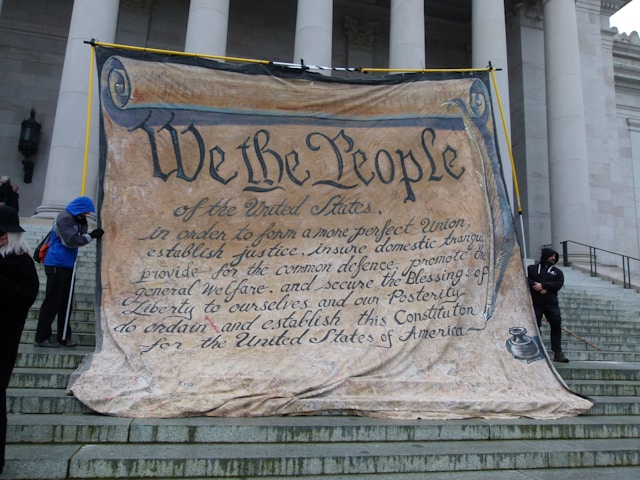 We the People
of the United States,
in order to form a more perfect Union,
establish justice, insure domestic tranqu
provide for the common defence, promote the
general Welfare, and secure the Blessings of
Liberty to ourselves and our Posterity
do ordain and establish this Constitution
for the United States of America